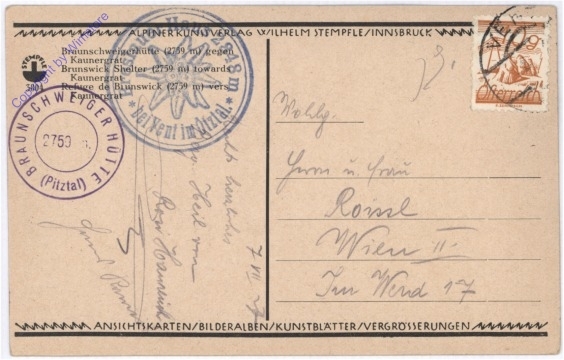 ALPINER KUNSTVERLAG WILHELM STEMPFLE/INNSBRUCK
STEMPFLE
5801
Braunschweigerhütte (2759 m) gegen
Kaunergrat
Brunswick Shelter (2759 m) towards
Kaunergrat
Refuge de Brunswick (2759 m) vers
Kaunergrat
Copyright by Winstore
BRAUNSCHWEIGER HÜTTE
2759 m.
(Pitztal)
2848 m
bei Vent im Ötztal.
VENT
9
Wohlg.
Herrn u. Frau
Roissl
Wien II.
Im Werd 17
7 VII 27
Heil von
ANSICHTSKARTEN/BILDERALBEN/KUNSTBLÄTTER/VERGRÖSSERUNGEN